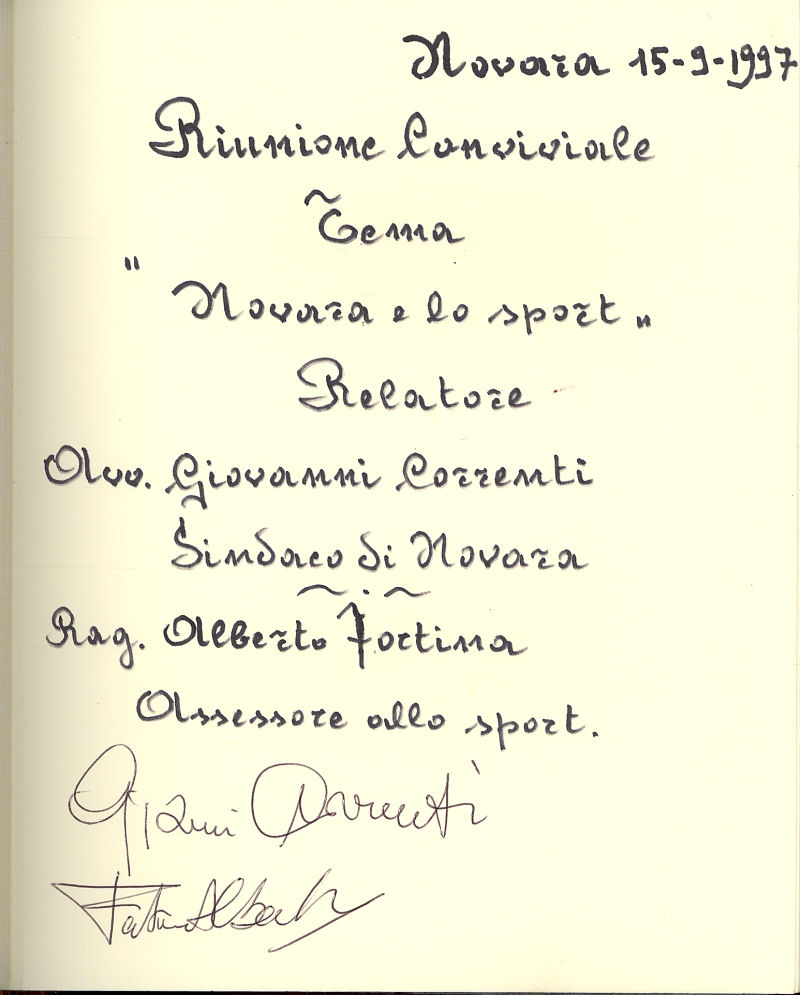 Novara 15-9-1997
Riunione Conviviale
Tema
"Novara e lo sport"
Relatore
Avv. Giovanni Correnti
Sindaco di Novara
~.~
Rag. Alberto Fortina
Assessore allo sport.
Gianni Correnti